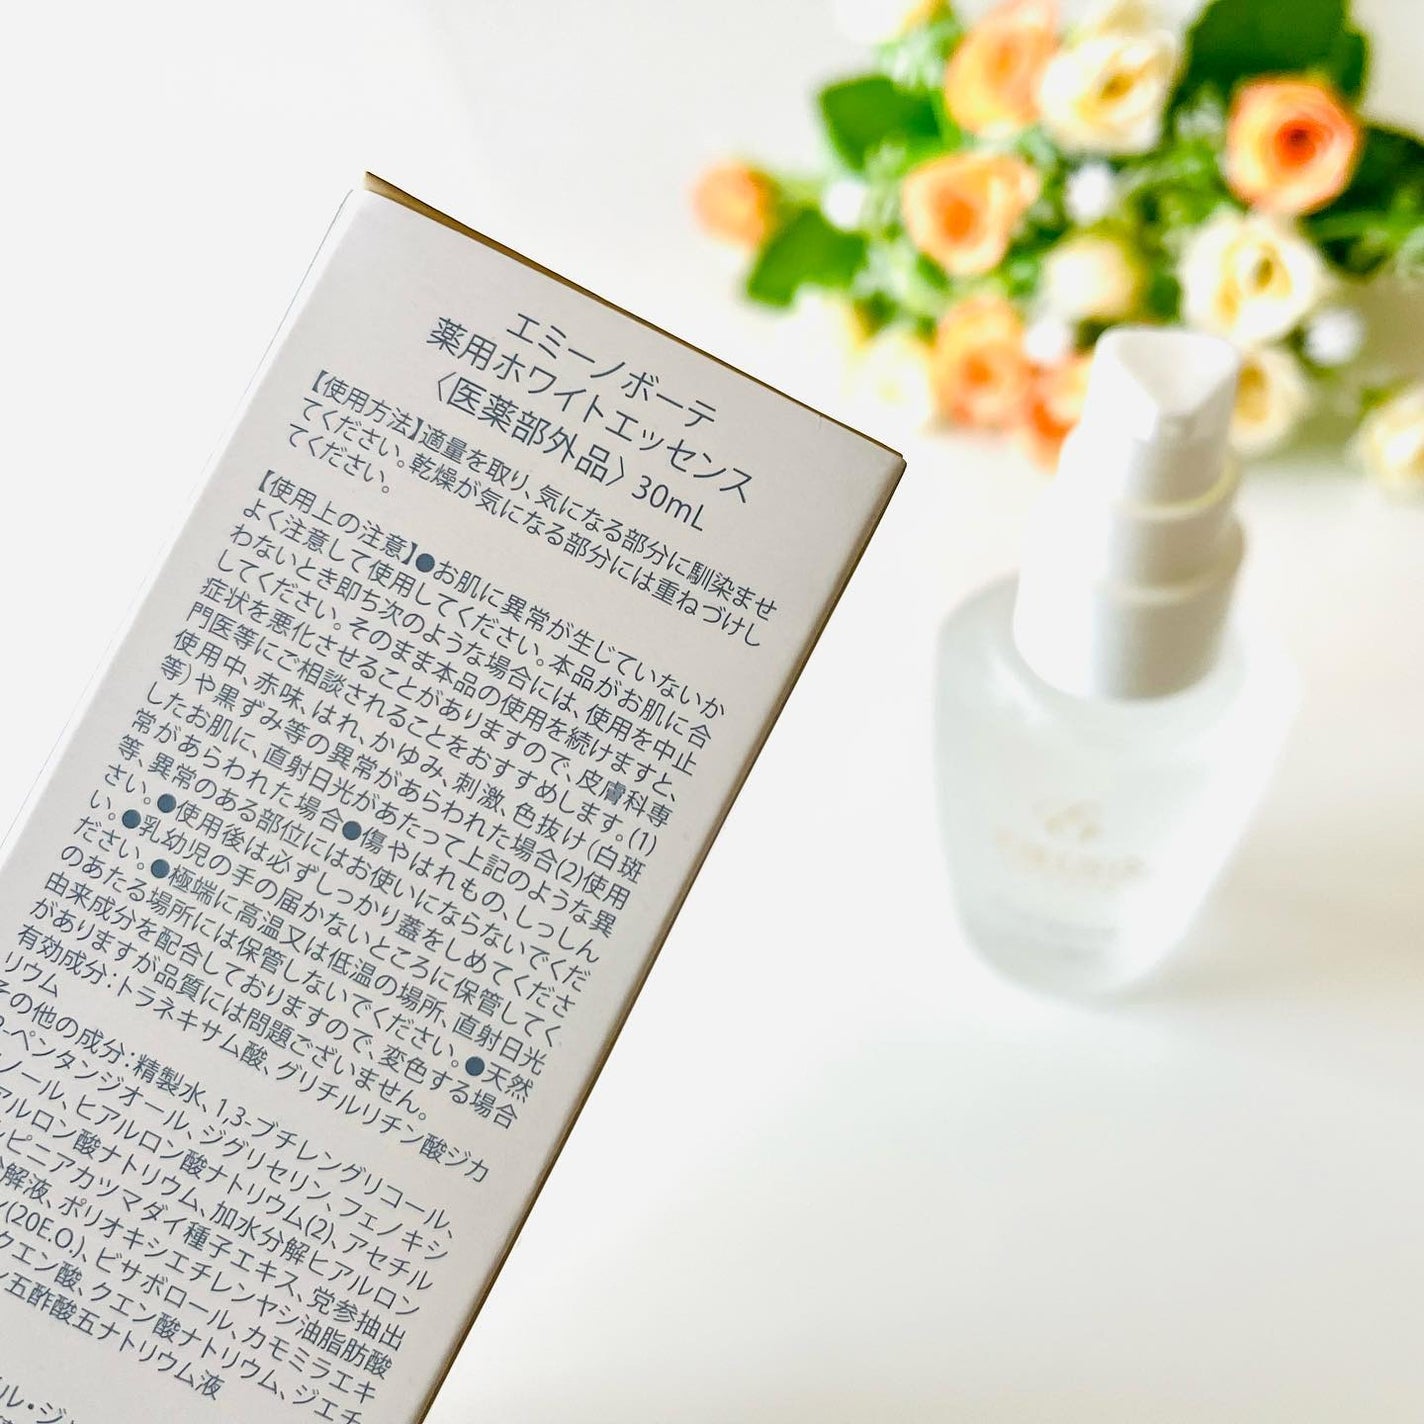 エミーノボーテ
薬用ホワイトエッセンス
〈医薬部外品〉30mL
【使用方法】適量を取り、気になる部分に馴染ませ
てください。乾燥が気になる部分には重ねづけし
てください。
【使用上の注意】●お肌に異常が生じていないか
よく注意して使用してください。本品がお肌に合
わないとき即ち次のような場合には、使用を中止
してください。そのまま本品の使用を続けますと、
症状を悪化させることがありますので、皮膚科専
門医等にご相談されることをおすすめします。(1)
使用中、赤味、はれ、かゆみ、刺激、色抜け(白斑
等)や黒ずみ等の異常があらわれた場合(2)使用
したお肌に、直射日光があたって上記のような異
常があらわれた場合●傷やはれもの、しっしん
等、異常のある部位にはお使いにならないでくだ
さい。●使用後は必ずしっかり蓋をしめてくださ
い。●乳幼児の手の届かないところに保管してく
ださい。●極端に高温又は低温の場所、直射日光
のあたる場所には保管しないでください。●天然
由来成分を配合しておりますので、変色する場合
がありますが品質には問題ございません。
有効成分:トラネキサム酸、グリチルリチン酸ジカ
リウム
その他の成分:精製水、1,3-ブチレングリコール、
ペンタンジオール、ジグリセリン、フェノキシ
ノール、ヒアルロン酸ナトリウム(2)、アセチル
アルロン酸ナトリウム、加水分解ヒアルロン
ピニアカツマダイ種子エキス、党参抽出
分解液、ポリオキシエチレンヤシ油脂肪酸
(20E.O.)、ビサボロール、カモミラエキ
クエン酸、クエン酸ナトリウム、ジエチ
五酢酸五ナトリウム液